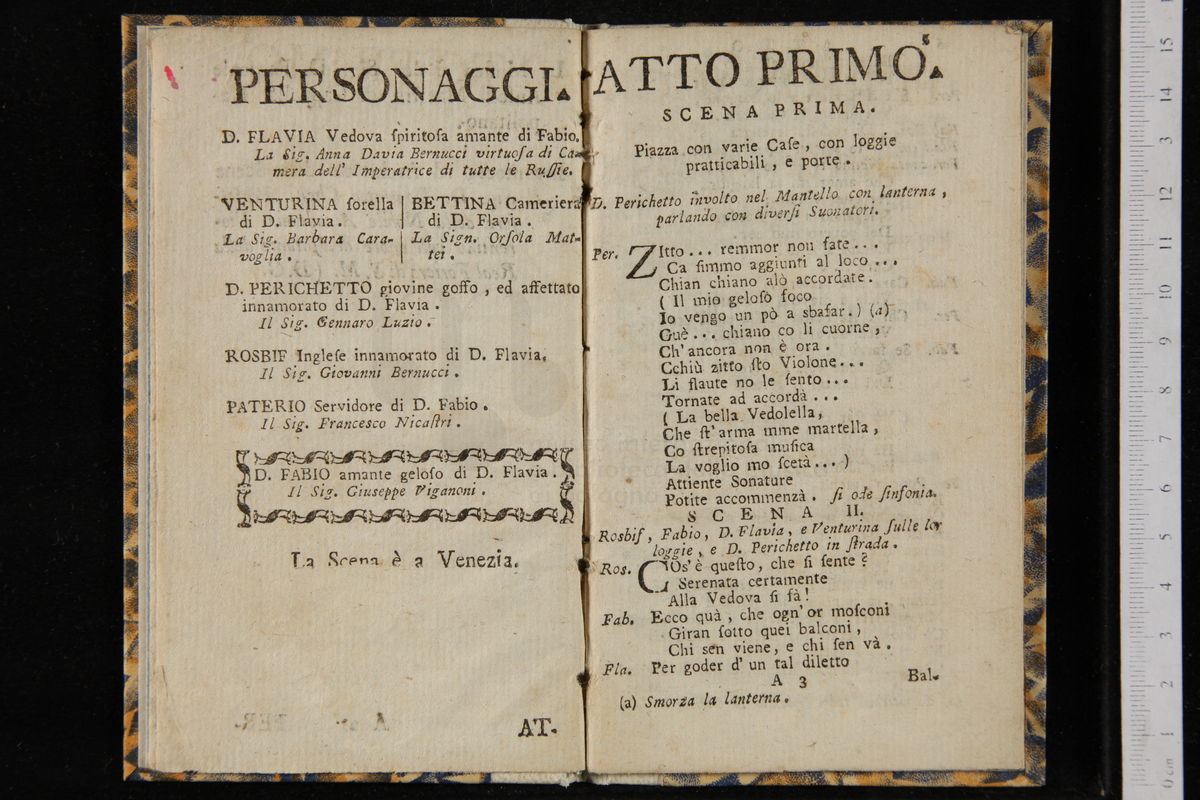 PERSONAGGI.
D. FLAVIA Vedova ſpiritoſa amante di Fabio.
La Sig. Anna Davia Bernucci virtuoſa di Ca-
mera dell' Imperatrice di tutte le Ruſſie.
VENTURINA ſorella
di D. Flavia.
La Sig. Barbara Cara-
voglia.
BETTINA Cameriera
di D. Flavia.
La Sign. Orſola Mat-
tei.
D. PERICHETTO giovine goffo, ed affettato
innamorato di D. Flavia.
Il Sig. Gennaro Luzio.
ROSBIF Ingleſe innamorato di D. Flavia.
Il Sig. Giovanni Bernucci.
PATERIO Servidore di D. Fabio.
Il Sig. Francesco Nicaſtri.
D. FABIO amante geloſo di D. Flavia.
Il Sig. Giuseppe Viganoni.
La Scena è a Venezia.
AT-
ATTO PRIMO.
SCENA PRIMA.
Piazza con varie Caſe, con loggie
pratticabili, e porte.
D. Perichetto involto nel Mantello con lanterna,
parlando con diverſi Suonatori.
Per. ZItto... remmor non fate...
Ca ſimmo aggiunti al loco...
Chian chiano alò accordate.
( Il mio geloſo foco
Io vengo un pò a sbafar.) (a)
Guè... chiano co li cuorne,
Ch' ancora non è ora.
Cchiù zitto ſto Violone...
Li flaute no le ſento...
Tornate ad accordà...
( La bella Vedolella,
Che ſt' arma mme martella,
Co ſtrepitoſa muſica
La voglio mo ſcetà... )
Attiente Sonature
Potite accommenzà. ſi ode ſinfonia.
SCENA II.
Rosbif, Fabio, D. Flavia, e Venturina ſulle lor
loggie, e D. Perichetto in ſtrada.
Ros. COs' è queſto, che ſi ſente?
Serenata certamente
Alla Vedova ſi fà!
Fab. Ecco quà, che ogn' or moſconi
Giran ſotto quei balconi,
Chi sen viene, e chi ſen và.
Fla. Per goder d' un tal diletto
A 3
Bal-
(a) Smorza la lanterna.